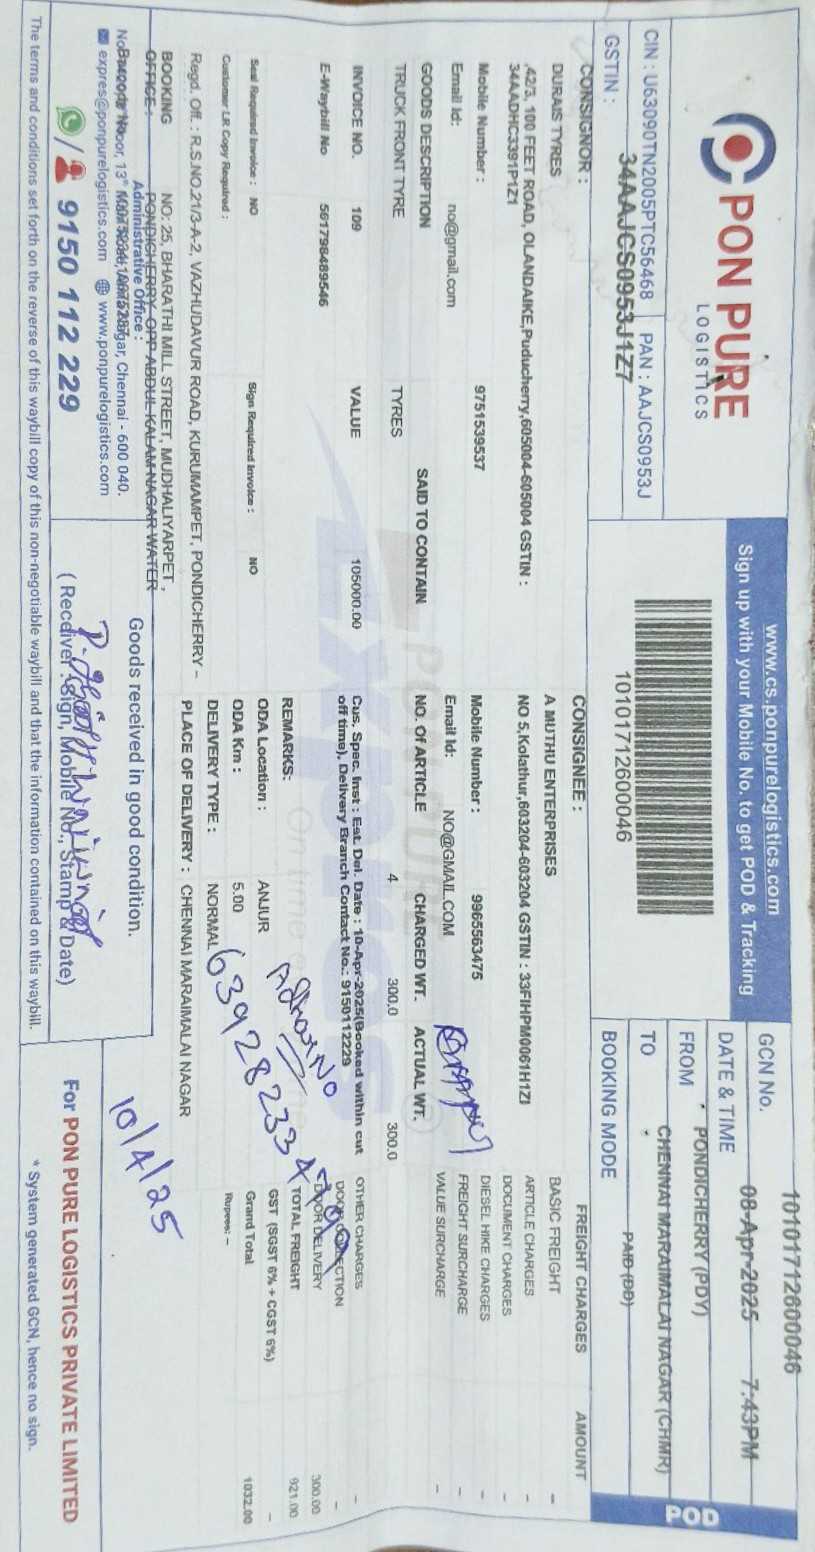 PON PURE
LOGISTICS
CIN : U63090TN2005PTC56468 PAN : AAJCS0953J
GSTIN : 34AAJCS0953J1Z7
www.cs.ponpurelogistics.com
Sign up with your Mobile No. to get POD & Tracking
10101712600046
GCN No. 10101712600046
DATE & TIME 08-Apr-2025 7:43PM
FROM PONDICHERRY (PDY)
TO CHENNAI MARAIMALAI NAGAR (CHMR)
BOOKING MODE PAID (DD)
POD
CONSIGNOR :
DURAIS TYRES
,42/3, 100 FEET ROAD, OLANDAIKE,Puducherry,605004-605004 GSTIN :
34AADHC3391P1Z1
Mobile Number : 9751539537
Email Id: no@gmail.com
CONSIGNEE :
A MUTHU ENTERPRISES
NO 5,Kolathur,603204-603204 GSTIN : 33FIHPM0061H1ZI
Mobile Number : 9965563475
Email Id: NO@GMAIL.COM
GOODS DESCRIPTION SAID TO CONTAIN NO. Of ARTICLE CHARGED WT. ACTUAL WT.
TRUCK FRONT TYRE TYRES 4 300.0 300.0
INVOICE NO. 109 VALUE 105000.00
E-Waybill No 561798489546
Cus. Spec. Inst : Est. Del. Date : 10-Apr-2025(Booked within cut
off time), Delivery Branch Contact No.: 9150112229
REMARKS:
Seal Required Invoice : NO Sign Required Invoice : NO
Customer LR Copy Required :
ODA Location : ANJUR
ODA Km : 5.00
DELIVERY TYPE : NORMAL
PLACE OF DELIVERY : CHENNAI MARAIMALAI NAGAR
FREIGHT CHARGES AMOUNT
BASIC FREIGHT -
ARTICLE CHARGES -
DOCUMENT CHARGES -
DIESEL HIKE CHARGES -
FREIGHT SURCHARGE -
VALUE SURCHARGE -
OTHER CHARGES -
DOOR COLLECTION -
DOOR DELIVERY 300.00
TOTAL FREIGHT 921.00
GST (SGST 6% + CGST 6%) -
Grand Total 1032.00
Rupees: -
Adhar No
10/4/25
Regd. Off. : R.S.NO.21/3-A-2, VAZHUDAVUR ROAD, KURUMAMPET, PONDICHERRY –
BOOKING NO: 25, BHARATHI MILL STREET, MUDHALIYARPET,
OFFICE : PONDICHERRY OPP ABDUL KALAM NAGAR WATER
Administrative Office :
Nagar, Chennai - 600 040.
expres@ponpurelogistics.com www.ponpurelogistics.com
9150 112 229
Goods received in good condition.
( Receiver Sign, Mobile No., Stamp & Date)
For PON PURE LOGISTICS PRIVATE LIMITED
* System generated GCN, hence no sign.
The terms and conditions set forth on the reverse of this waybill copy of this non-negotiable waybill and that the information contained on this waybill.